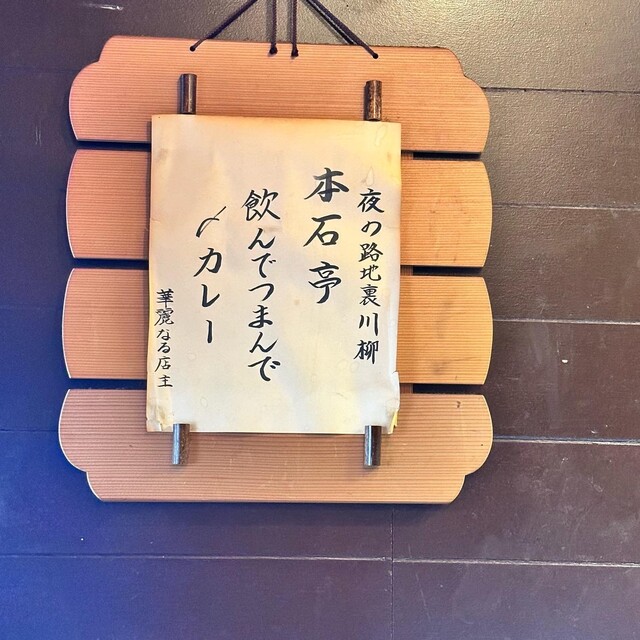 夜の路地裏川柳
本石亭
飲んでつまんで
〆カレー
華麗なる店主